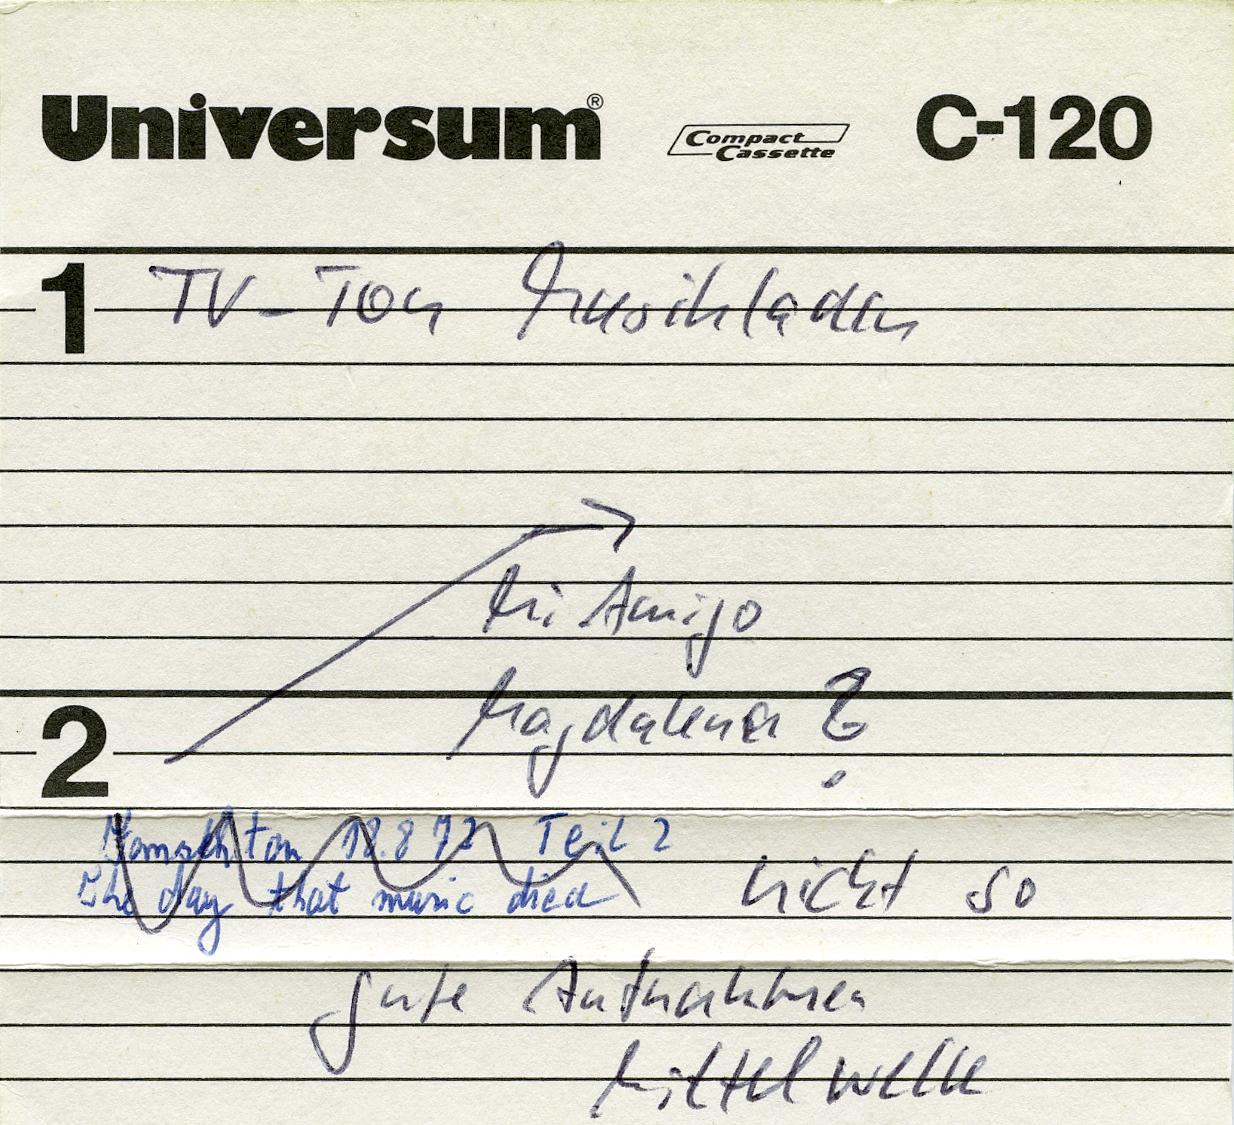 Universum® Compact Cassette C-120
1 TV-Ton Musikladen
Mi Amigo
2 Magdalena ?
18.8 72 Teil 2
The day that music died
nicht so
gute Aufnahmen
Mittelwelle